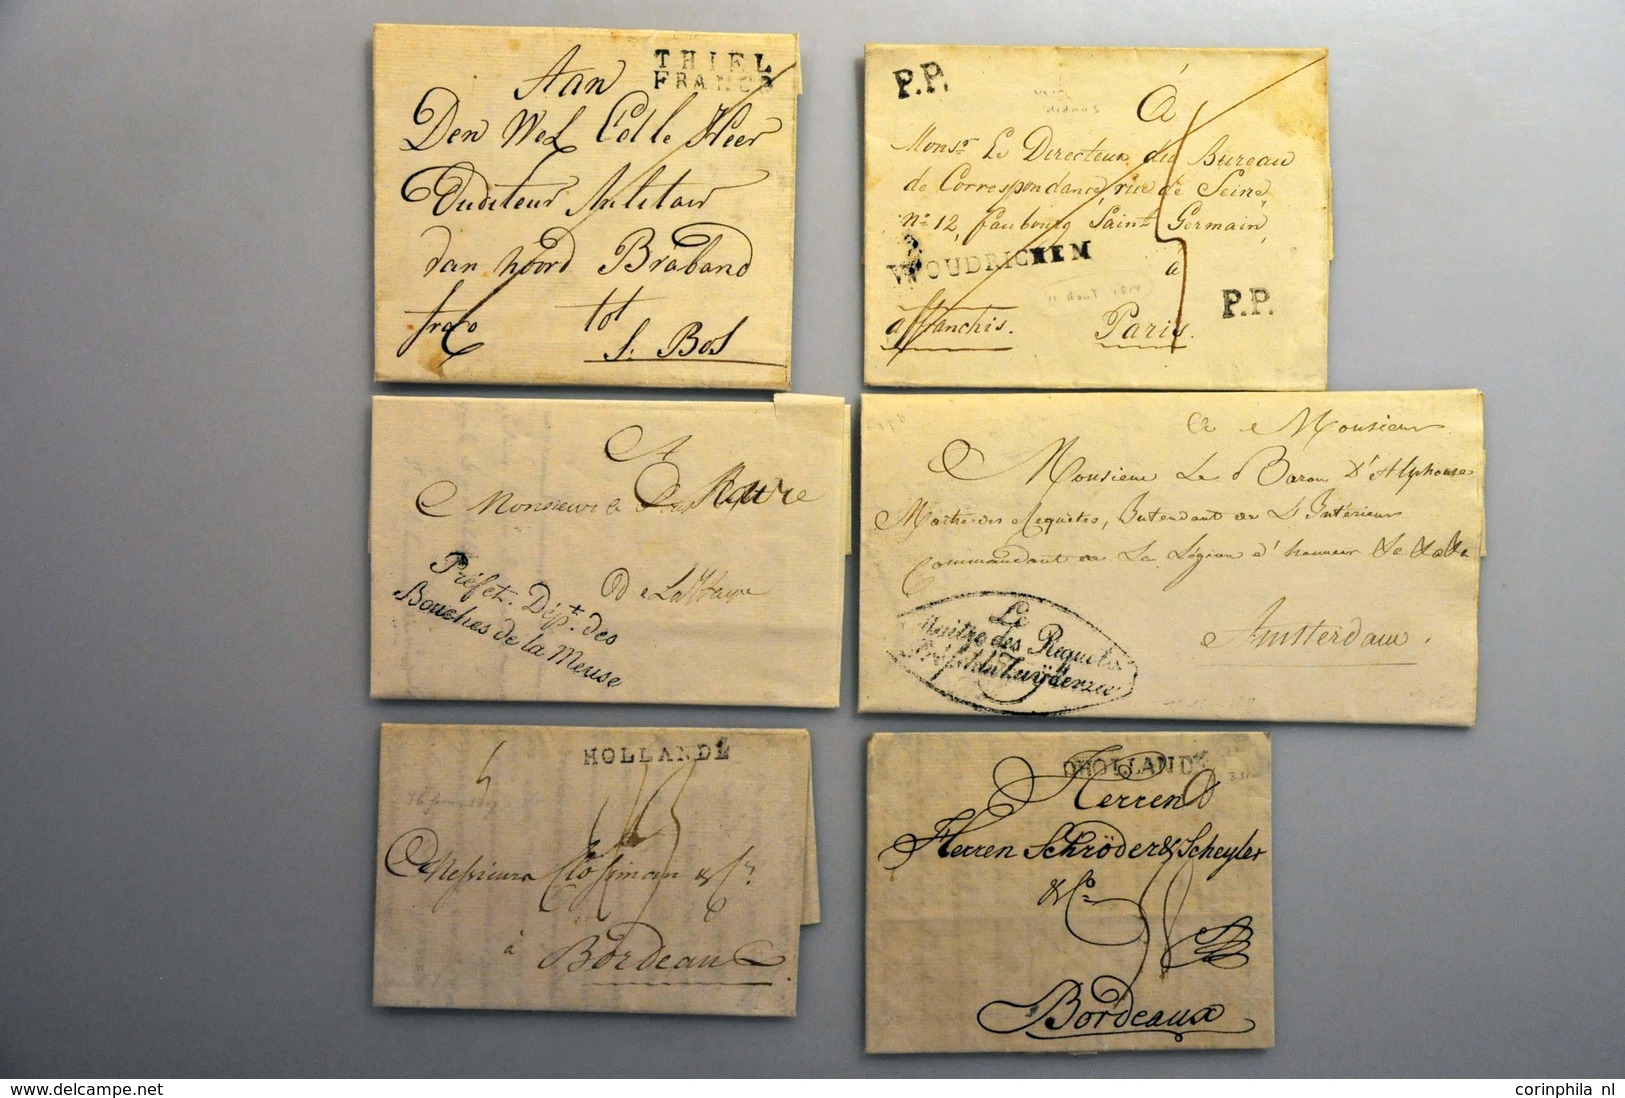 THIEL
FRANCO
Aan
Den Wel Edele Heer
Auditeur Militair
van Noord Braband
frco tot
S. Bos
P.P.
à
Monsr. Le Directeur du Bureau
de Correspondance, rue de Seine,
No. 12, faubourg Saint Germain,
WOUDRICHEM
à
P.P.
affranchis. Paris.
A
Monsieur
De La Haye
Préfet. Dépt. des
Bouches de la Meuse
A Monsieur
Monsieur Le Baron D'Alphonse
Maitre des Requêtes, Intendant de L'Intérieur
Commandant de La Légion d'honneur
Amsterdam.
Le
Maitre des Requetes
Préfet du Zuyderzee
HOLLANDE
Messieurs & Co.
à Bordeaux
HOLLANDE
Herren
Herren Schröder & Scheyler
& Co.
Bordeaux
www.delcampe.net
corinphila nl